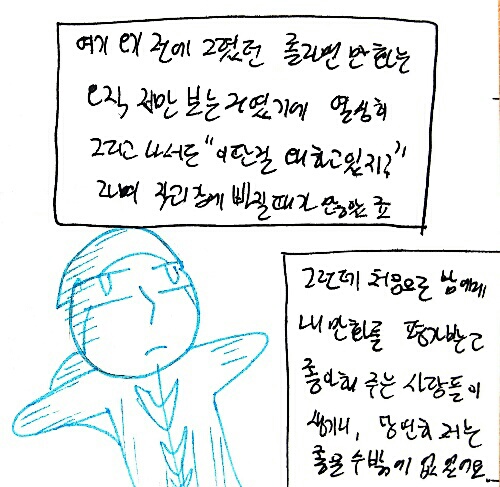 여기 오기 전에 그렸던 졸라맨 만화는
오직 저만 보는 거였기에 열심히
그리고 나서도 "이딴걸 왜 하고있지?"
라며 자괴감에 빠질때가 많았죠
그런데 처음으로 남에게
내 만화를 평가받고
좋아해 주는 사람들이
생기니, 당연히 저는
좋을 수밖에 없었어요